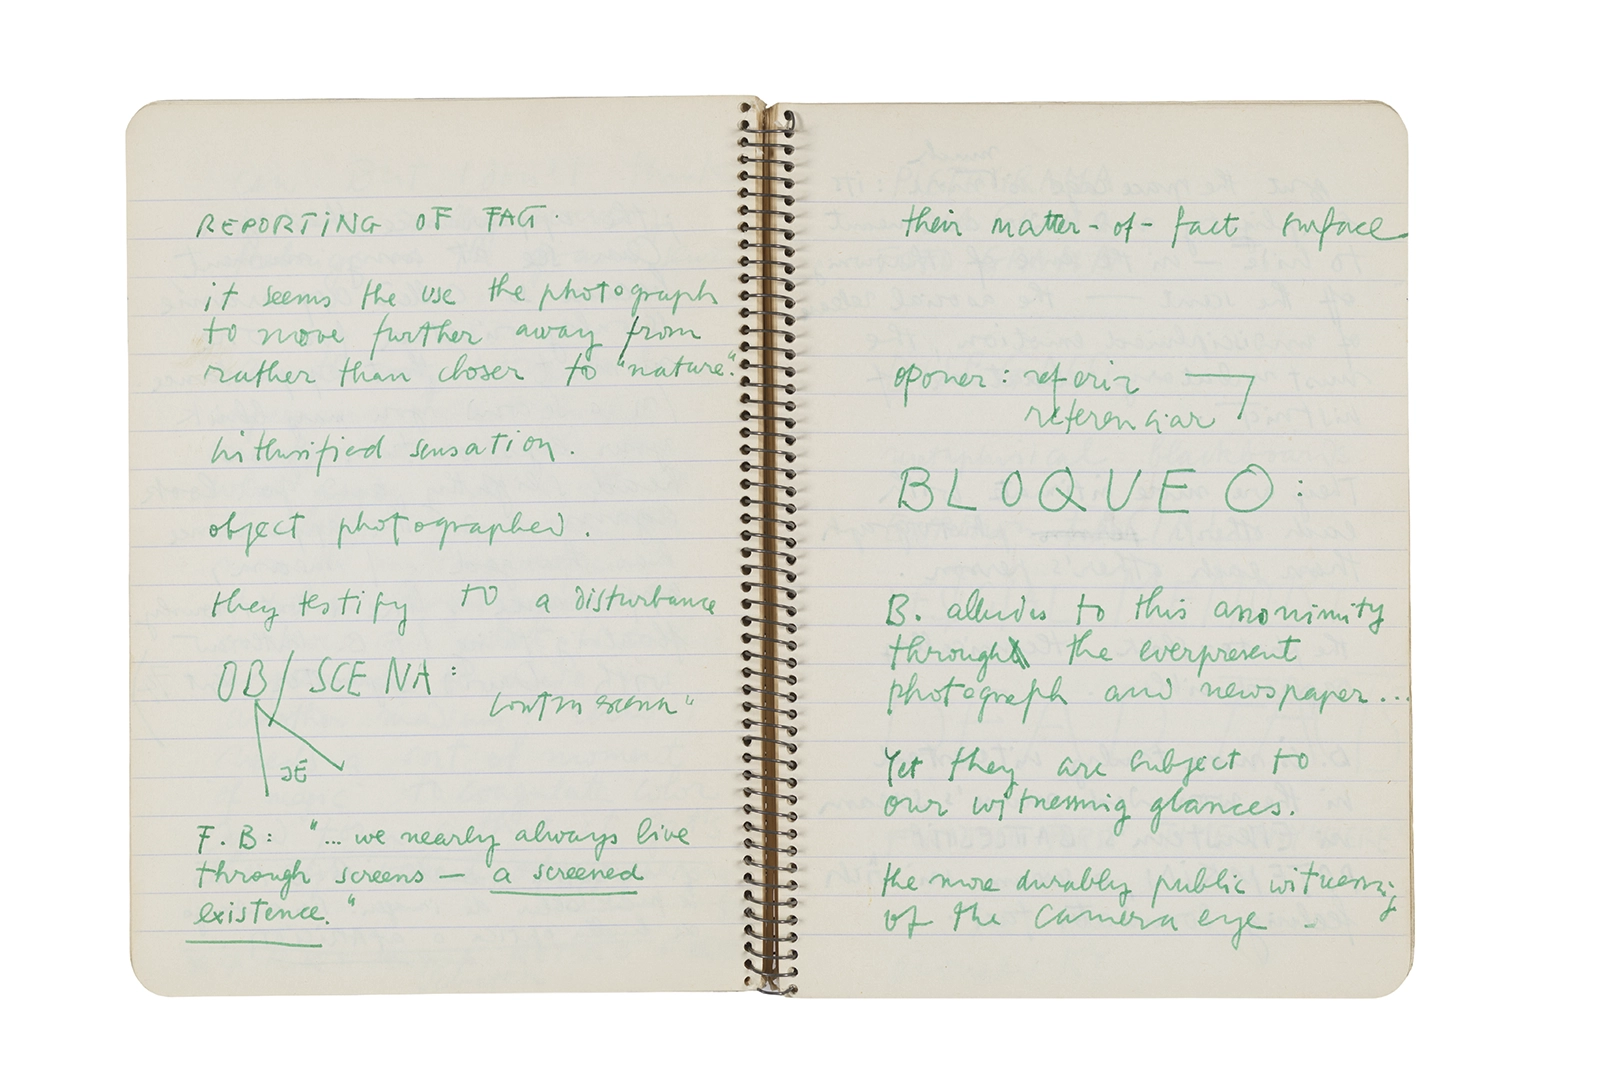 REPORTING OF FACT.
it seems the use the photograph
to move further away from
rather than closer to "nature".
sensation.
object photographed.
they testify to a disturbance
OB/SCENA:
F.B: "... we nearly always live
through screens — a screened
existence."
their matter-of-fact surface
oponer: referir
referenciar
BLOQUEO:
B. alludes to this anonimity
through the everpresent
photograph and newspaper...
Yet they are subject to
our witnessing glances.
the more durably public witnessing
of the camera eye.